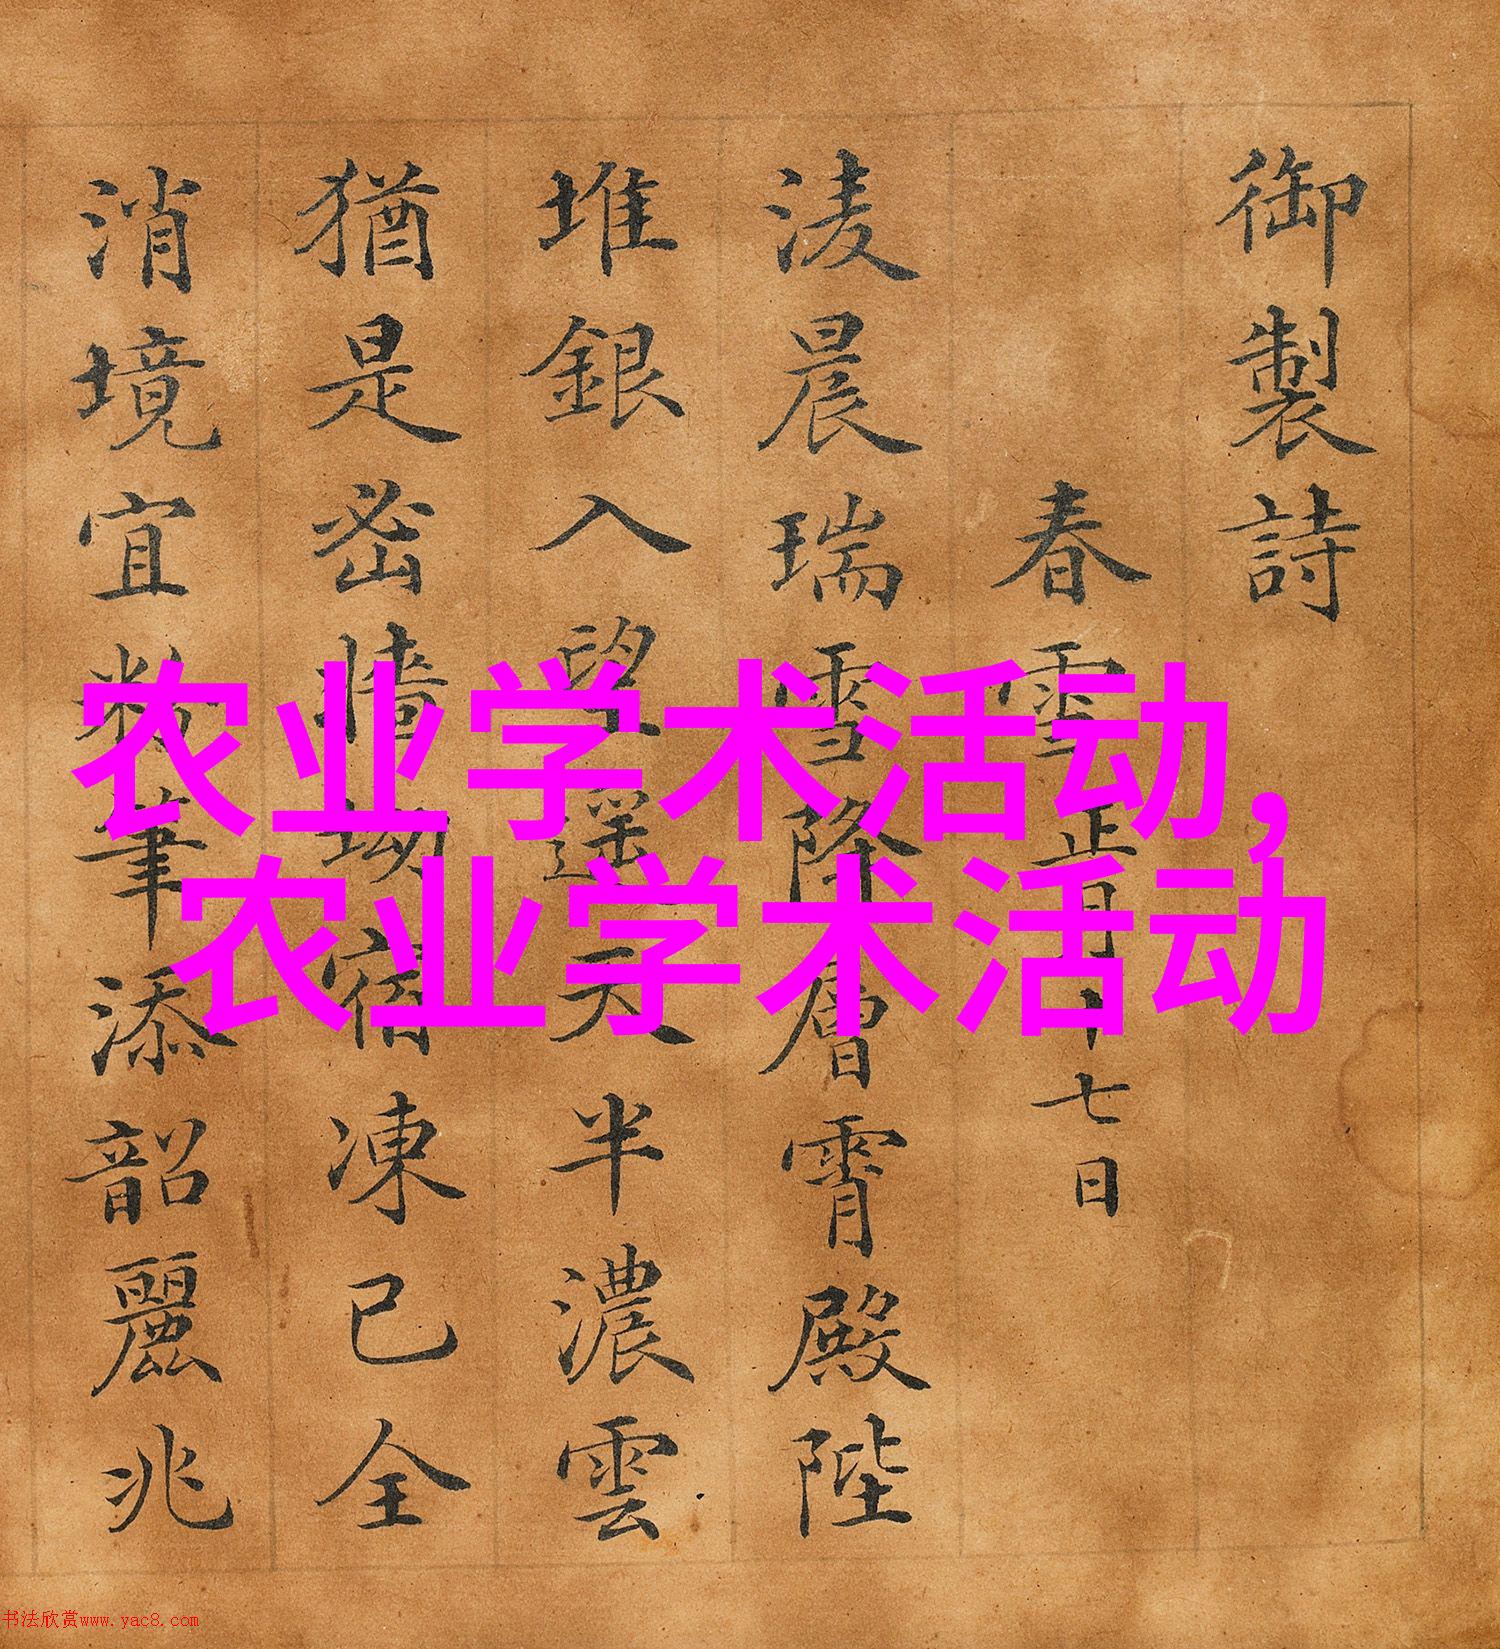 御製詩
春雪正月十七日
淩晨瑞雪降層霄殿陛
堆銀入望遥天半濃雲
猶是密墻坳宿凍已全
消境宜粉筆添韶麗兆
农业学术活动,
农业学术活动
书法欣赏www.yac8.com